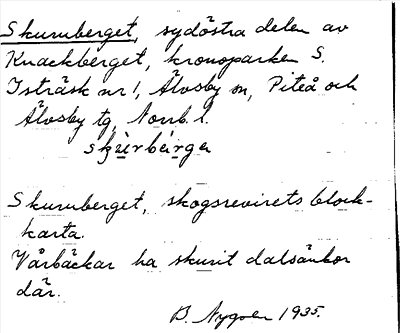 Skuruberget, sydöstra delen av
Knackberget, kronoparken S.
Isträsk nr 1, Älvsby sn, Piteå och
Älvsby tg, Norrb. l.
Skuruberget, skogsrevirets block-
karta.
Vårbäckar ha skurit dalsänkor
där.
B. Nygren 1935.